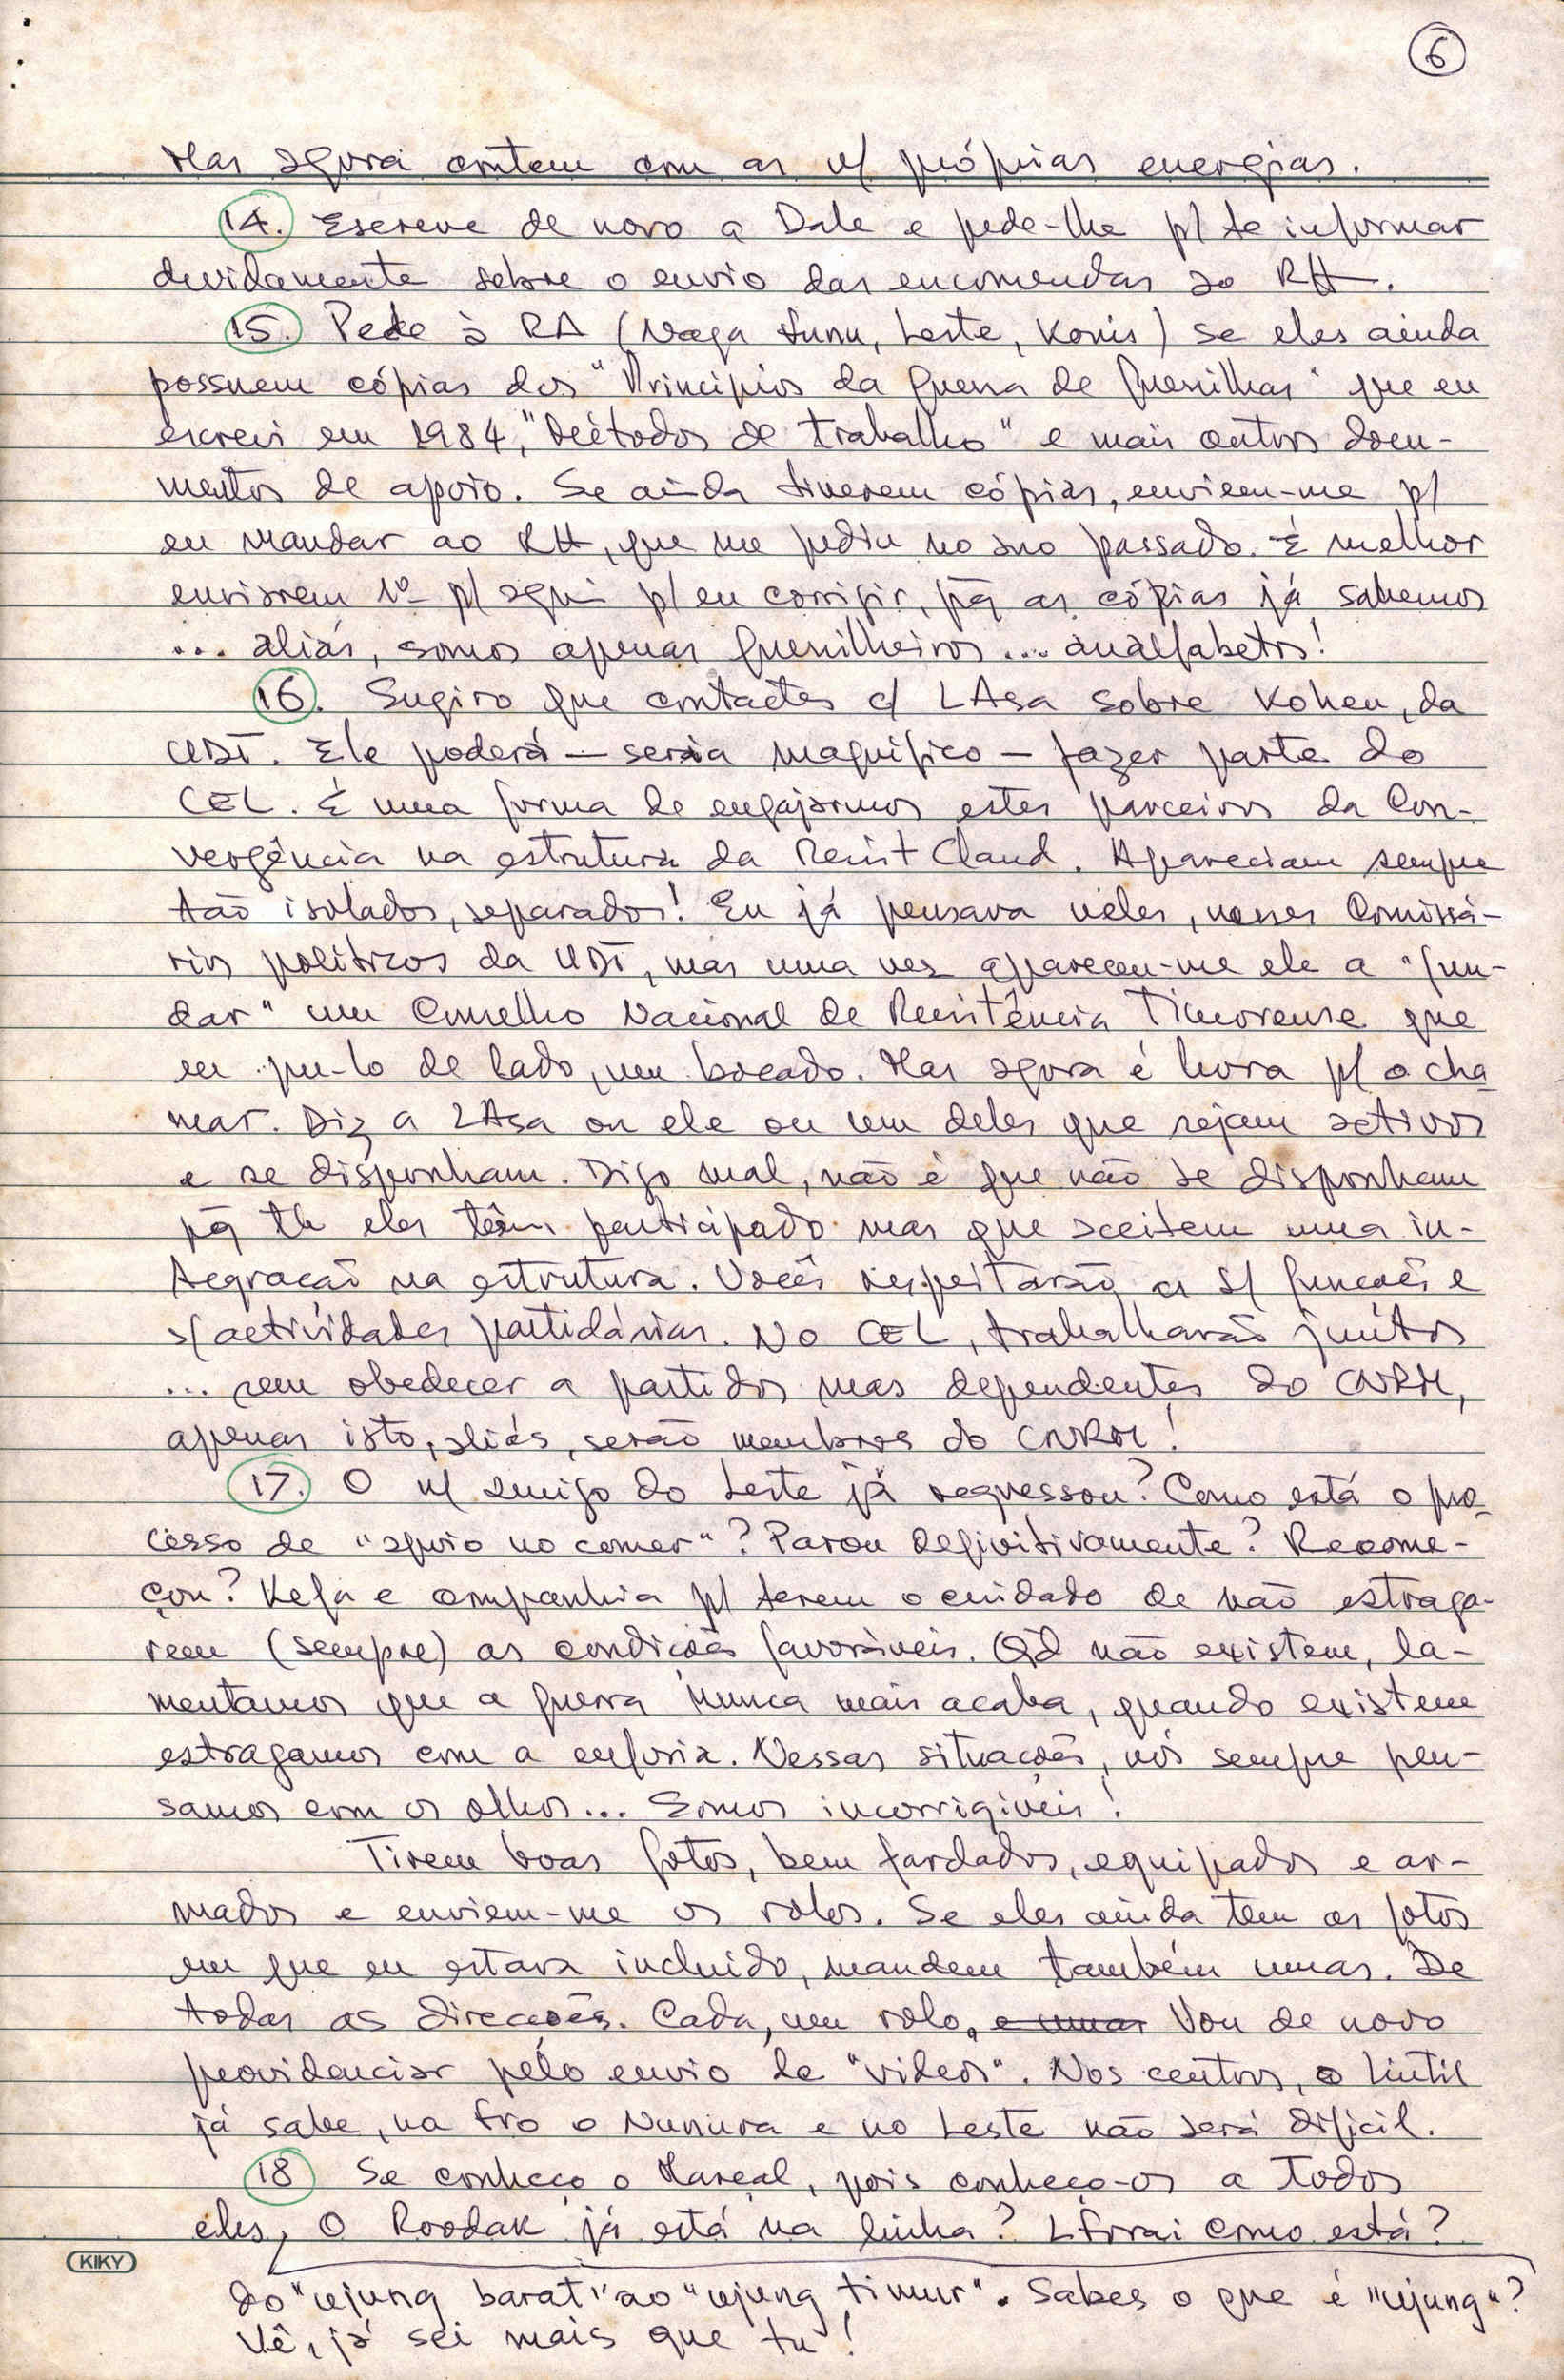 6
Mas agora contem com as n/ próprias energias.
14. Escreve de novo a Dale e pede-lhe p/ te informar
devidamente sobre o envio das encomendas ao RH.
15. Pede à RA (Naga Funu, Leste, Konis) se eles ainda
possuem cópias dos "Princípios da Guerra de Guerrilhas" que eu
escrevi em 1984, "Métodos de trabalho" e mais outros docu-
mentos de apoio. Se ainda tiverem cópias, enviem-me p/
eu mandar ao RH, que me pediu no ano passado. É melhor
enviarem 1º p/ aqui p/ eu corrigir, pq as cópias já sabemos
... aliás, somos apenas guerrilheiros... analfabetos!
16. Sugiro que contactes c/ LAsa sobre Kohen, da
UDT. Ele poderá — seria magnífico — fazer parte do
CEL. É uma forma de engajarmos estes parceiros da Con-
vergência na estrutura da Resist Cland. Apareciam sempre
tão isolados, separados! Eu já pensava neles, nesses Comissá-
rios políticos da UDT, mas uma vez apareceu-me ele a "fun-
dar" um Conselho Nacional de Resistência Timorense que
eu pu-lo de lado, um bocado. Mas agora é hora p/ o cha
mar. Diz a LAsa ou ele ou um deles que sejam activos
e se disponham. Digo mal, não é que não se disponham
pq tb eles têm participado mas que aceitem uma in-
tegração na estrutura. Vocês respeitarão as s/ funções e
s/ actividades partidárias. No CEL, trabalharão juntos
... sem obedecer a partidos mas dependentes do CNRM,
apenas isto, aliás, serão membros do CNRM!
17. O n/ amigo do Leste já regressou? Como está o pro
cesso de "apoio no comer"? Parou definitivamente? Recome-
çou? Kefa e companhia p/ terem o cuidado de não estraga-
rem (sempre) as condições favoráveis. Qd não existem, la-
mentamos que a guerra nunca mais acaba, quando existem
estragamos com a euforia. Nessas situações, nós sempre pen-
samos com os olhos... Somos incorrigíveis!
Tirem boas fotos, bem fardados, equipados e ar-
mados e enviem-me os rolos. Se eles ainda tem as fotos
em que eu estava incluido, mandem também umas. De
todas as direcções. Cada, um rolo, e umas Vou de novo
providenciar pelo envio de "videos". Nos centros, o Lintil
já sabe, na Fro o Nunura e no Leste não será dificil.
18 Se conheço o Marçal, pois conheço-os a todos
eles, O Roodak já está na linha? LForai como está?
KIKY
do "ujung barat" ao "ujung timur". Sabes o que é "ujung"?
Vê, já sei mais que tu!